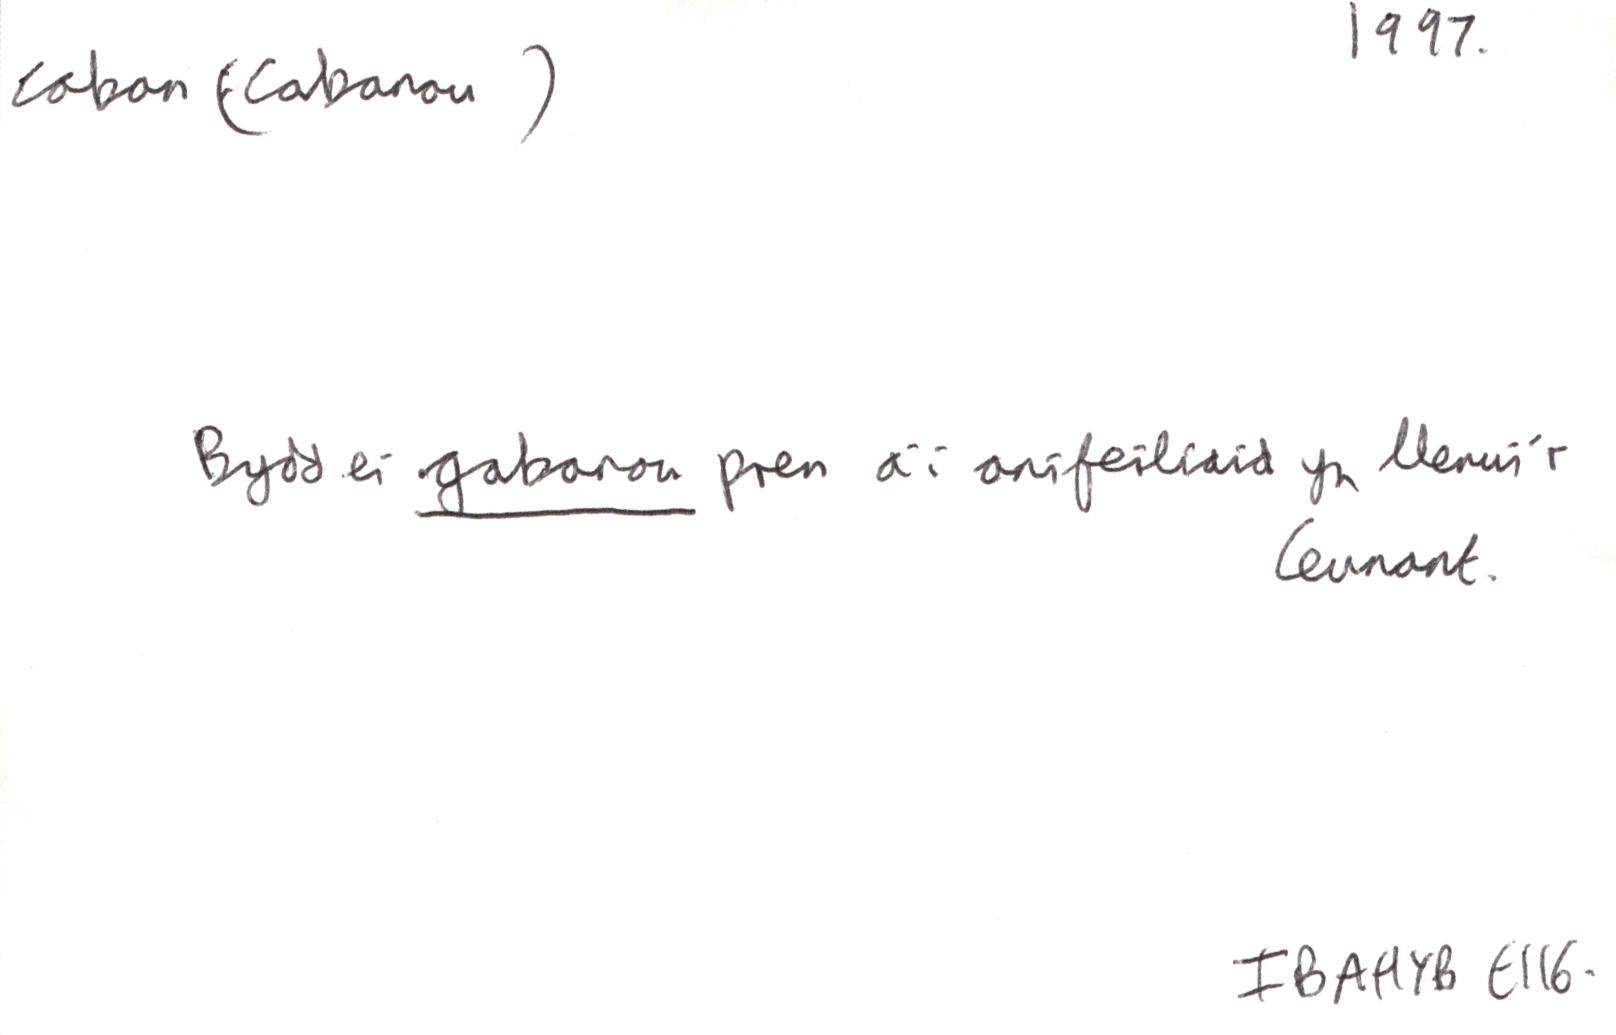 1997.
caban (Cabanau)
Bydd ei gabanau pren a'i anifeiliaid yn llenwi'r
Ceunant.
IBAHYB E116.